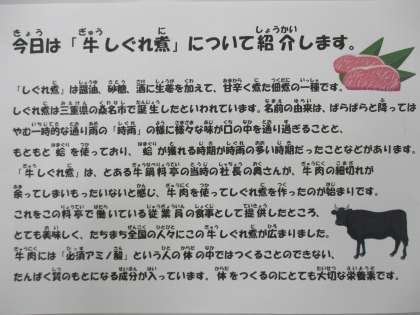 今日は「牛しぐれ煮」について紹介します。
「しぐれ煮」は醤油、砂糖、酒に生姜を加えて、甘辛く煮た佃煮の一種です。
しぐれ煮は三重県の桑名市で誕生したといわれています。名前の由来は、ぱらぱらと降っては
やむ一時的な通り雨の「時雨」の様に様々な味が口の中を通り過ぎることと、
もともと蛤を使っており、蛤が獲れる時期が時雨の多い時期だったことなどがあります。
「牛しぐれ煮」は、とある牛鍋料亭の当時の社長の奥さんが、牛肉の細切れが
余ってしまいもったいないと感じ、牛肉を使ってしぐれ煮を作ったのが始まりです。
これをこの料亭で働いている従業員の食事として提供したところ、
とても美味しく、たちまち全国の人々にこの牛しぐれ煮が広まりました。
牛肉には「必須アミノ酸」という人の体の中ではつくることのできない、
たんぱく質のもとになる成分が入っています。体をつくるのにとても大切な栄養素です。